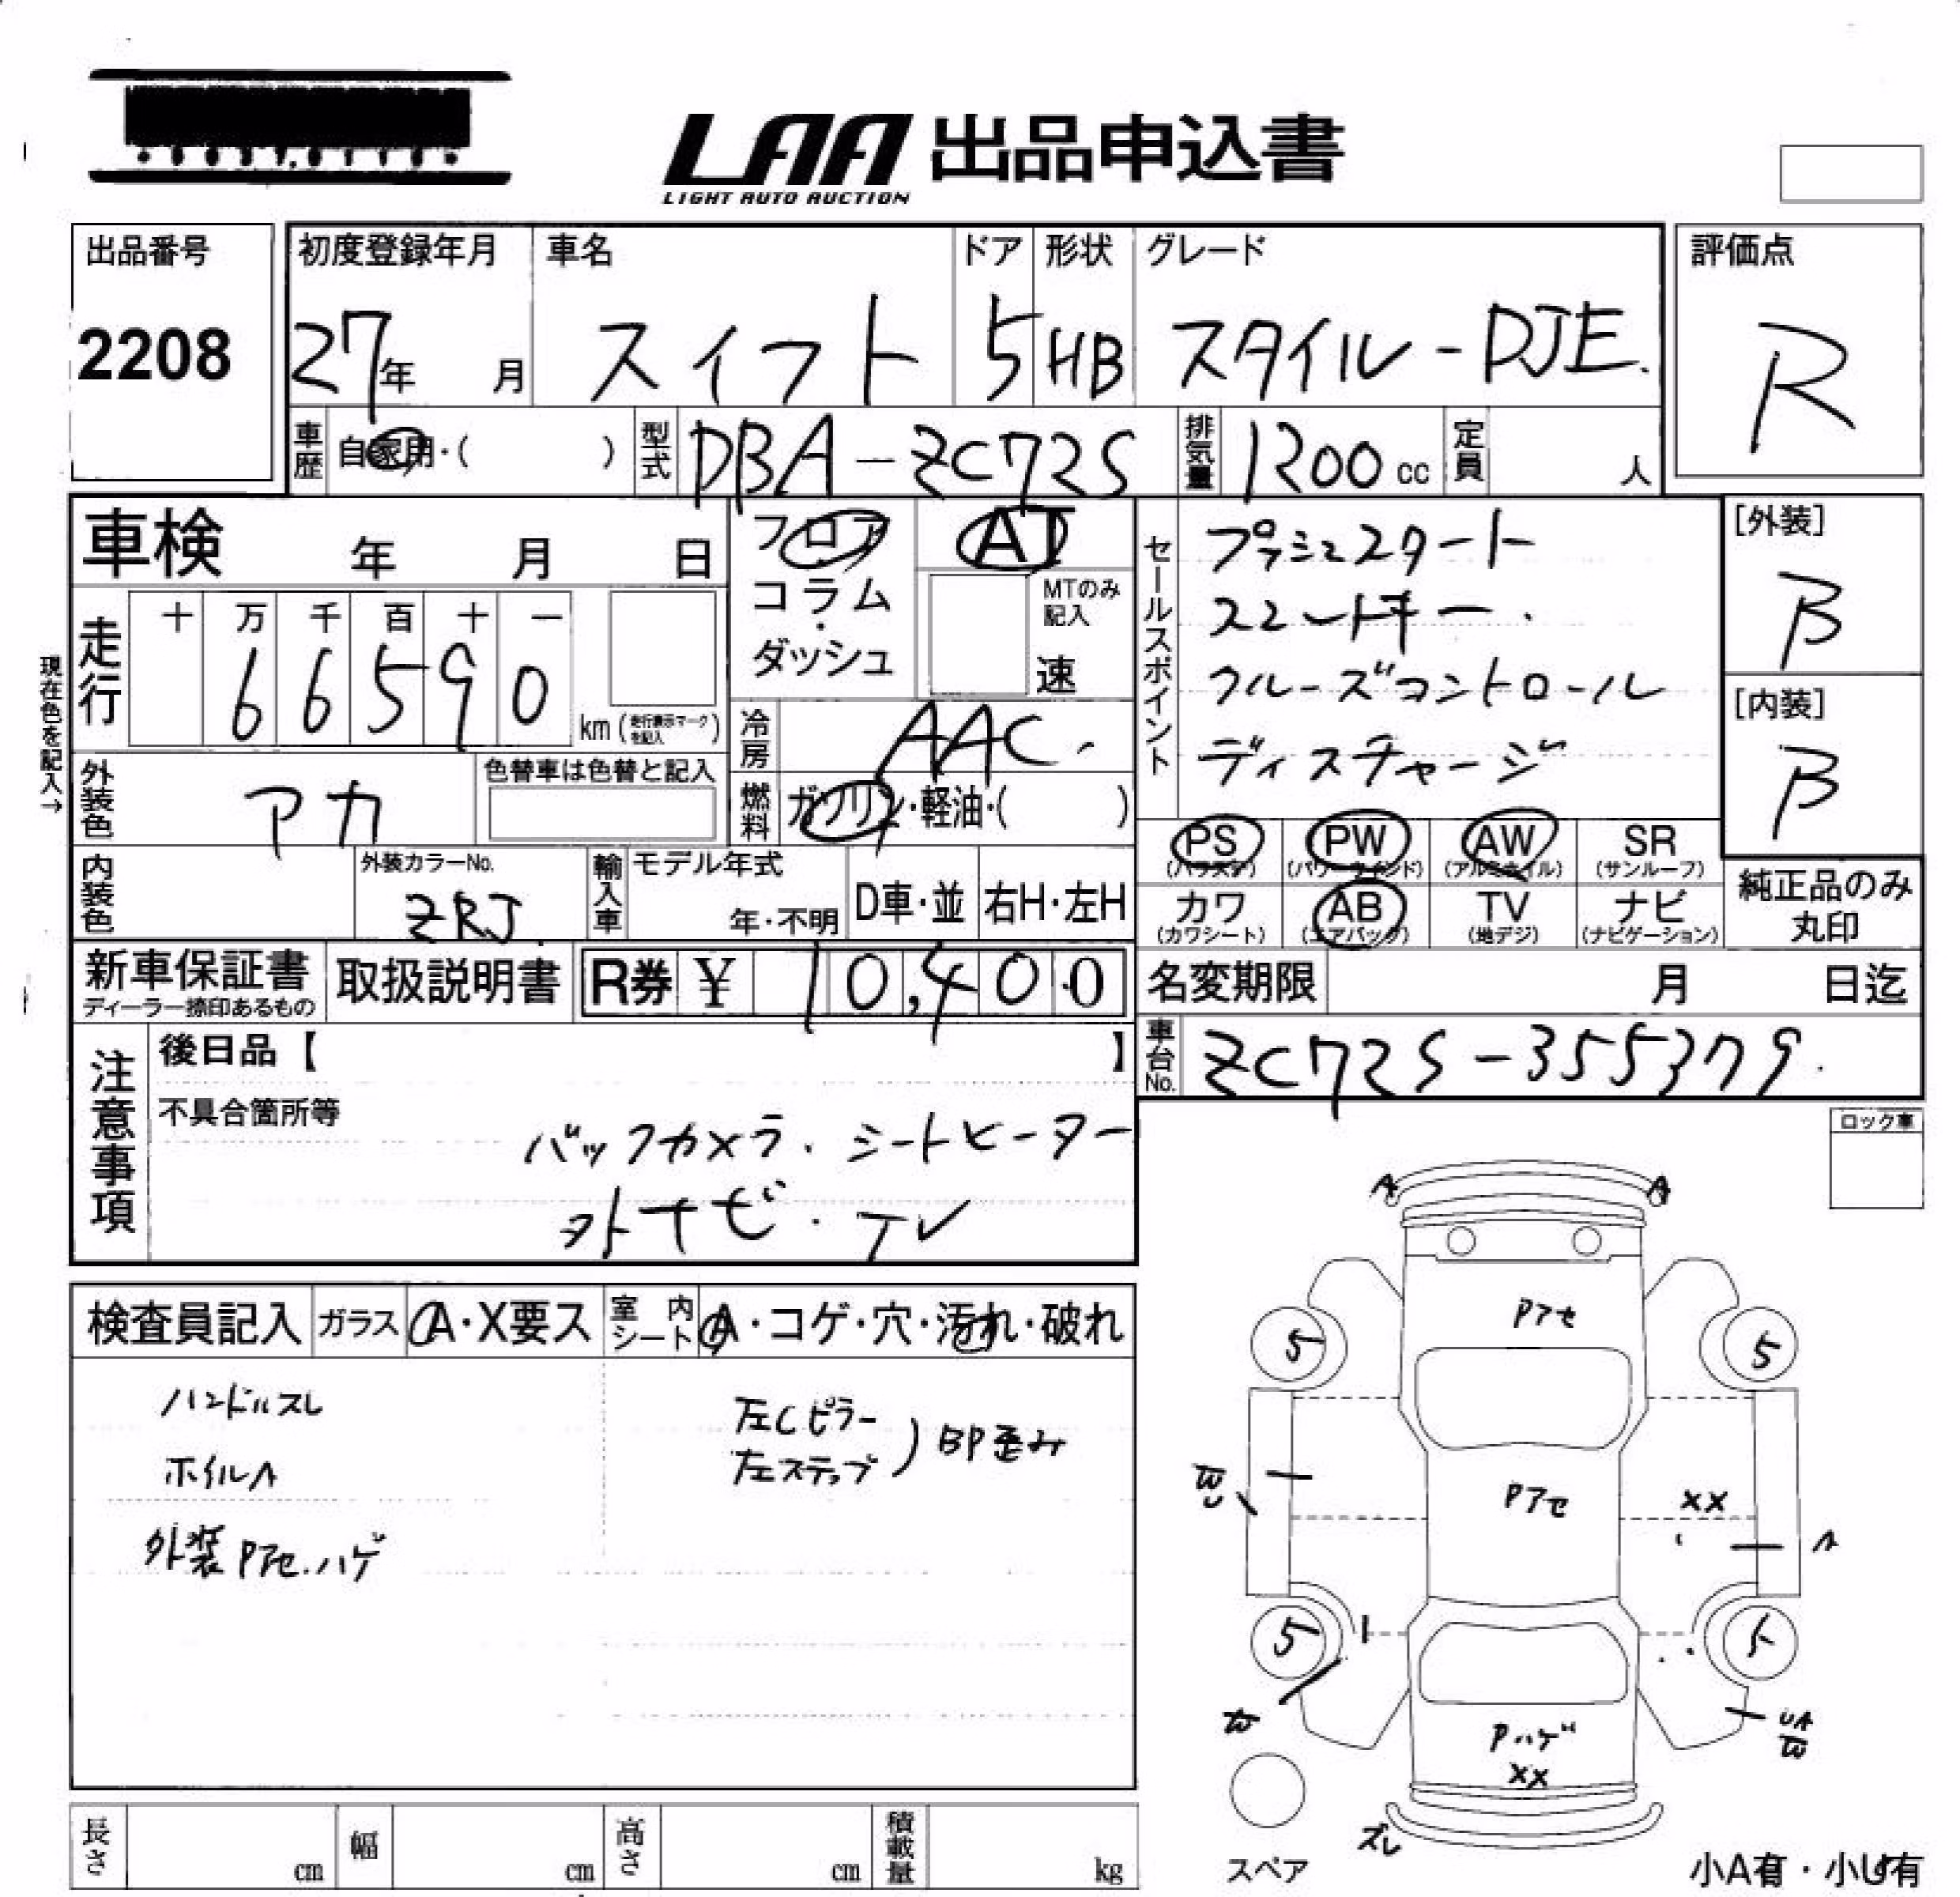 LAA 出品申込書
LIGHT AUTO AUCTION
出品番号
2208
初度登録年月
27年 月
車名
スイフト
ドア
5
形状
HB
グレード
スタイル-DJE.
評価点
R
車歴 自家用・( )
型式 DBA-ZC72S
排気量 1200 cc
定員 人
車検 年 月 日
フロア
コラム
・
ダッシュ
AT
MTのみ記入
速
セールスポイント
プッシュスタート
スマートキー.
クルーズコントロール
ディスチャージ
[外装]
B
[内装]
B
現在色を記入→
走行
十 万 千 百 十 一
6 6 5 9 0
km (走行表示マークを記入)
冷房 AAC.
外装色 アカ
色替車は色替と記入
燃料 ガソリン・軽油・( )
PS (パワステ)
PW (パワーウインド)
AW (アルミホイル)
SR (サンルーフ)
カワ (カワシート)
AB (エアバック)
TV (地デジ)
ナビ (ナビゲーション)
純正品のみ丸印
内装色
外装カラーNo.
ZRJ
輸入車
モデル年式
年・不明
D車・並
右H・左H
新車保証書
ディーラー捺印あるもの
取扱説明書
R券 ¥ 10,400
名変期限 月 日迄
車台No. ZC72S-355379.
注意事項
後日品【 】
不具合箇所等
バックカメラ. シートヒーター
外ナビ. TV
ロック車
検査員記入
ガラス A・X要ス
室内シート A・コゲ・穴・汚れ・破れ
ハンドルスレ
ホイルA
外装Pアセ.ハゲ
左Cピラー
左ステップ ) BP歪み
A A
Pアセ
5 5
Pアセ
XX
A
5 5
W
UA
W
Pハゲ
XX
ズレ
スペア
小A有・小U有
長さ cm
幅 cm
高さ cm
積載量 kg